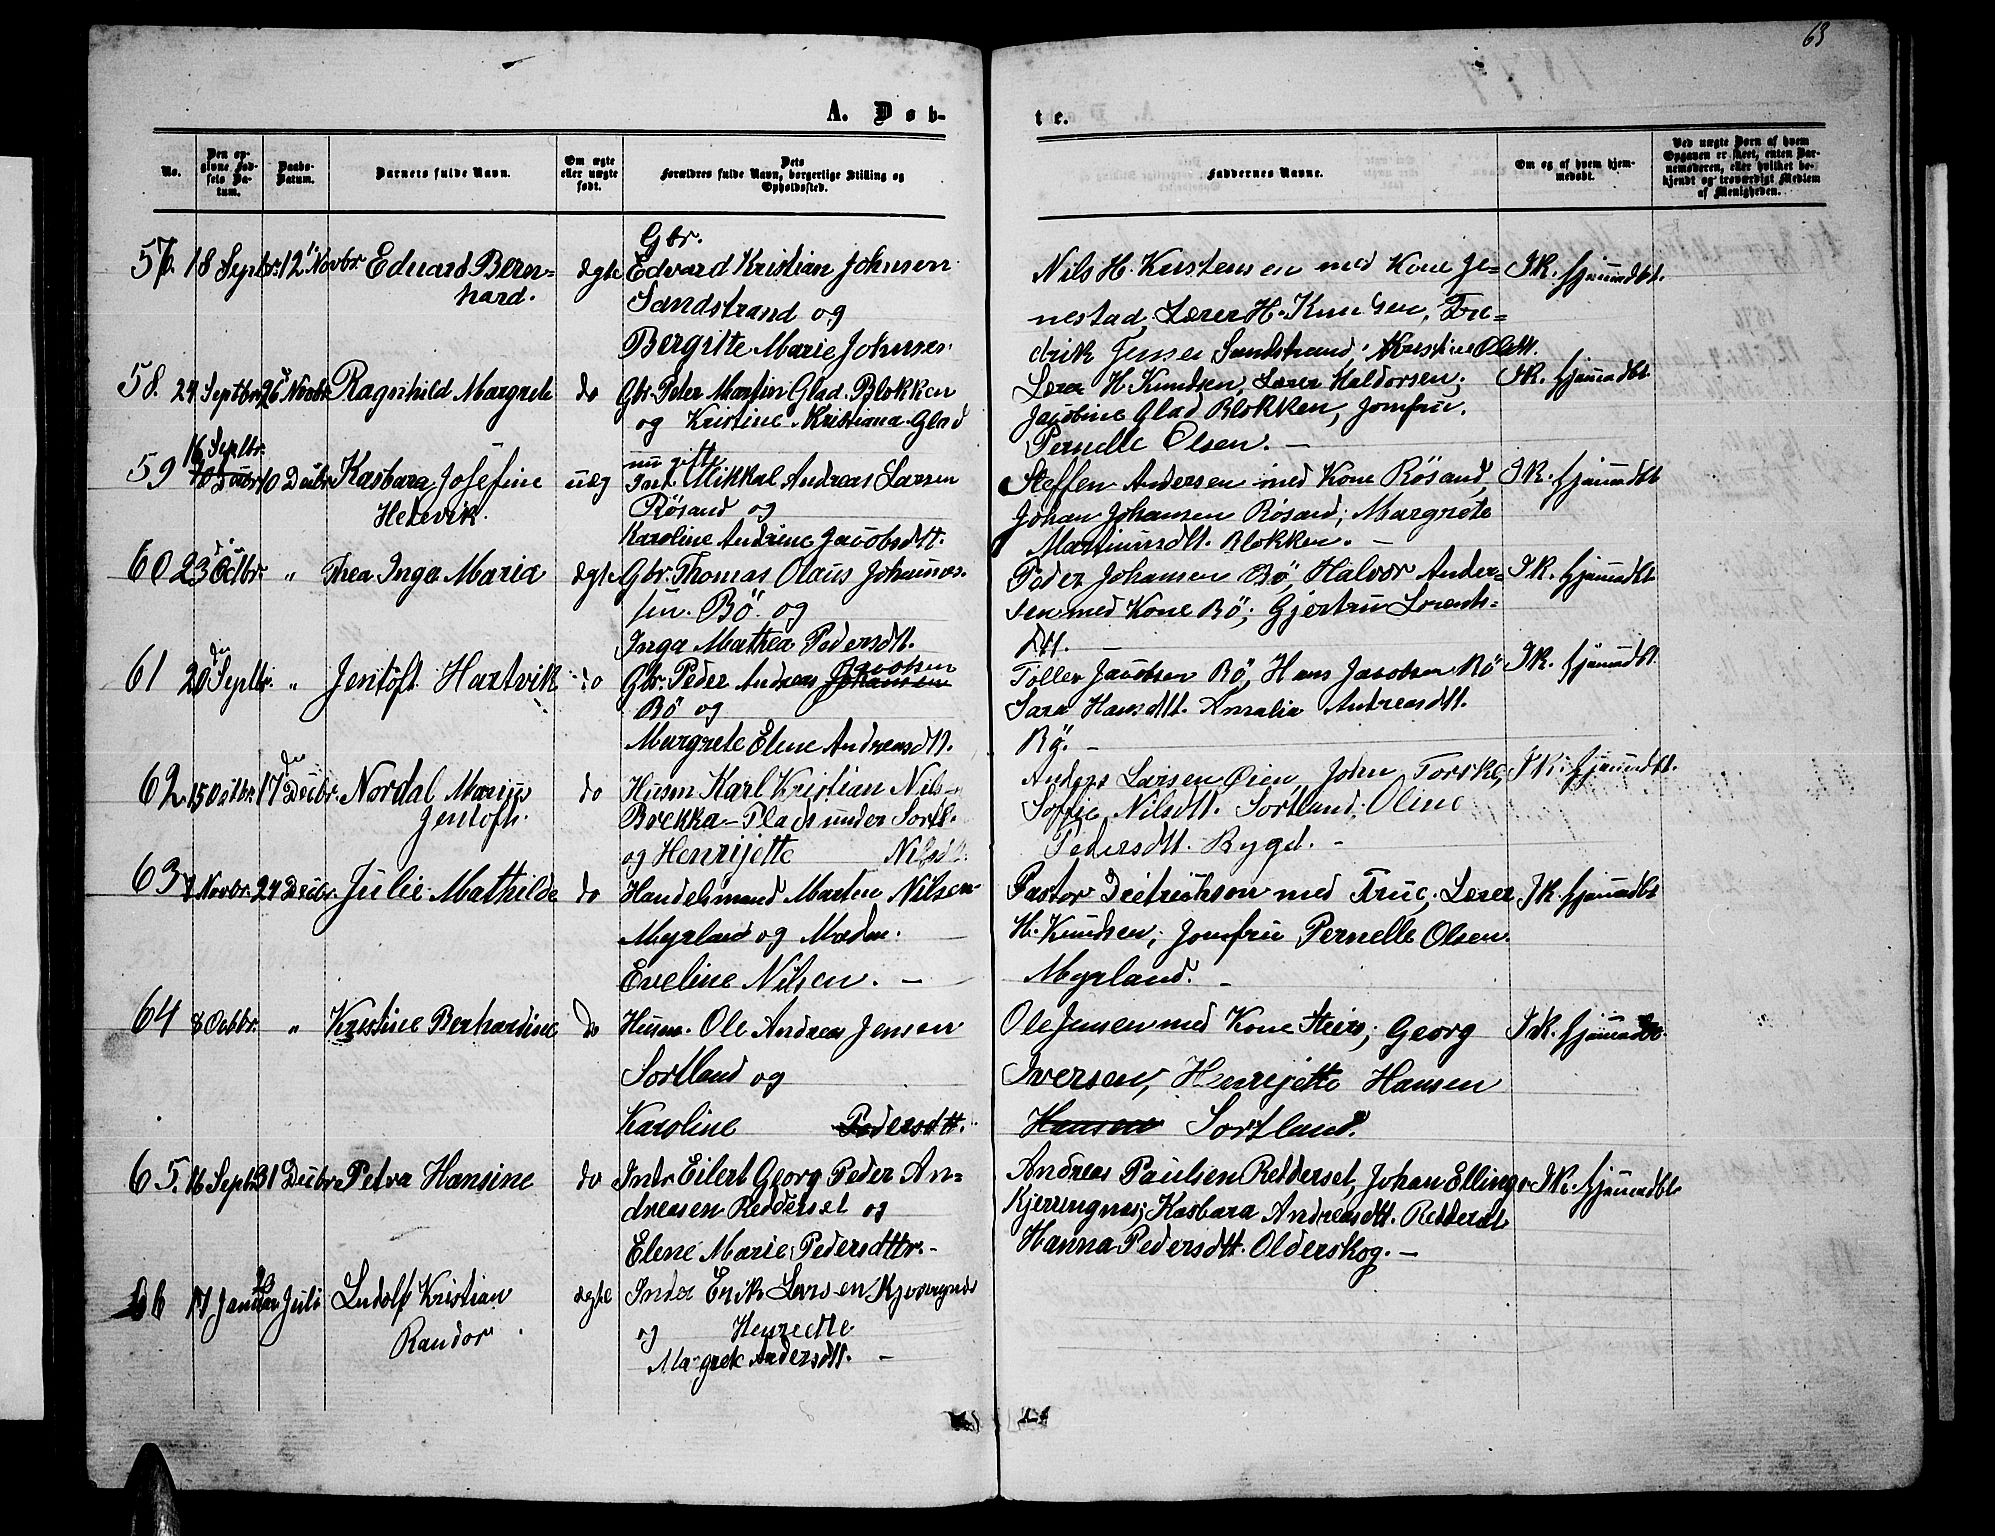 63
A. Døb-
te.
No.
Den op-
givne Fød-
sels Da-
tum.
Daabs-
Datum.
Barnets fulde Navn.
Om ægte
eller uægte
født.
Dets
Forældres fulde Navn, borgerlige Stilling og
Opholdssted.
Faddernes Navne.
Om og af hvem hjem-
medøbt.
Ved uægte Børn af hvem
Opgaven er skeet, enten Bar-
nemoderen, eller hvilket be-
kjendt og troværdigt Medlem
af Menigheden.
57. 18 Septbr. 12 Novbr. Eduard Bern=
hard.
ægte
Gbr.
Edvard Kristian Johnsen
Sandstrand og
Bergitte Marie Johnsen
Nils H. Kristensen med Kone Je=
nestad, Lærer H. Knudsen, Fre=
drik Jensen Sandstrand, Kristine Olsdtt.
I K. hjemmdbt.
58. 24 Septbr. 26 Novbr. Ragnhild Margrete
do
Gbr. Peter Martin Glad. Blokken
og Kristine Kristiana Glad
Lærer H. Knudsen, Lærer Haldorsen,
Jacobine Glad Blokken, Jomfru
Pernelle Olsen. —
I K. hjemmdbt.
59 16 Septbr. 10 Decbr. Kasbara Josefine
Hedevik.
uæg
nu gifte
Int. Mikkal Andreas Larsen
Røsand og
Karoline Andrine Jacobsdtt.
Steffen Andersen med Kone Røsand,
Johan Johansen Røsand, Margrete
Martinusdtt. Blokken. —
I K. hjemmdbt
60 23 Octbr. " Thea Inga Maria
ægte
Gbr. Thomas Olaus Johannes-
sen. Bö. og
Inga Mathea Pedersdtt.
Peder Johansen Bö, Halvor Ander=
sen med Kone Bö; Gjertru Lorents=
dtt. —
I K. hjemmdbt
61 20 Septbr. " Jentoft Hartvik
do
Gbr. Peder Andreas Johansen Jacobsen
Bö og
Margrete Elene Andreasdtt.
Tollev Jacobsen Bö, Hans Jacobsen Bö
Sara Hansdtt. Amalia Andreasdtt.
Bö. —
I K. hjemmdbt.
62 15 Octbr. 17 Decbr. Nordal Marius
Jentoft.
do
Husm Karl Kristian Nils-
Brekka-Plads under Sortl.
og Henrijette Nilsdt.
Anders Larsen Øien, John Torske,
Soffie Nilsdtt. Sortland, Oline
Pedersdtt. Bygd. —
I K. hjemmdbt.
63 Novbr. 24 Decbr. Julie Mathilde
do
Handelsmand Martin Nilsen
Myrland og Madm.
Eveline Nilsen. —
Pastor Deitrichson med Frue, Lærer
H. Knudsen, Jomfru Pernelle Olsen.
Myrland. —
I K. hjemmdbt
64 8 Octbr. " Kristine Berhardine
do
Husm. Ole Andreas Jensen
Sortland og
Karoline Pedersdtt.
Ole Jensen med Kone Steirs, Georg
Iversen, Henrijette Hansen
Hansen Sortland.
I K. hjemmdbt.
65. 16 Septbr 31 Decbr. Petra Hansine
do
Indr Eilert Georg Peder An=
dreasen Reddersel og
Elene Marie Pedersdttr.-
Andreas Paulsen Reddersel, Johan Ellings.
Kjerringnes, Kasbara Andreasdtt. Reddersel
Hanna Pedersdtt. Olderskog. —
I K. hjemmdbt
66 17 Januar Juli Ludolf Kristian
Randor.
ægte
Inder Erik Larsen Kjerringnes
og Henredtte
Margrete Andersdtt. —